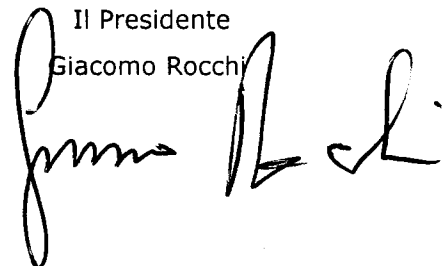 Il Presidente
Giacomo Rocchi